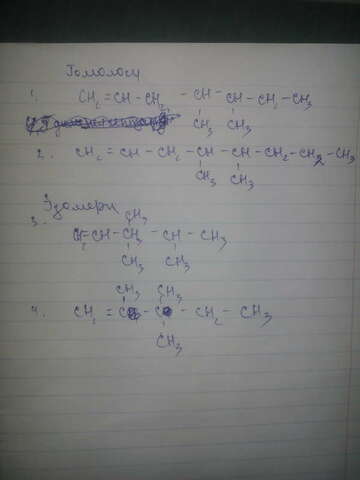 Гомологи
1. CH₂=CH-CH₂-CH-CH-CH₂-CH₃
CH₃ CH₃
2. CH₂=CH-CH₂-CH-CH-CH₂-CH₂-CH₃
CH₃ CH₃
Изомеры
CH₃
3. CH=CH-CH-CH-CH₃
CH₃ CH₃
CH₃ CH₃
4. CH₂=C-C-CH₂-CH₃
CH₃